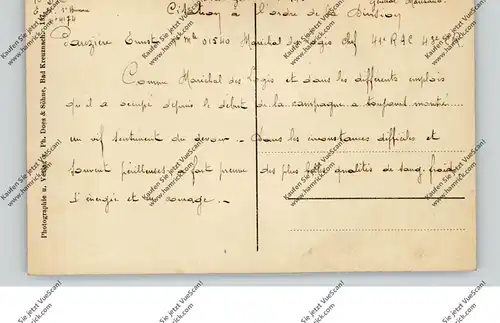 Citation à l'ordre de
N° 4174
Ernest Mle 01540 Maréchal des Logis chef 41e R A C
Comme Maréchal des Logis et dans les différents emplois
qu'il a occupé depuis le début de la campagne a toujours montré
un vif sentiment du devoir - Dans les circonstances difficiles et
souvent périlleuses a fait preuve des plus belles qualités de sang froid
d'énergie et de courage. -
Photographie u. Verlag v. Ph. Dorn & Söhne, Bad Kreuznach
Kaufen Sie jetzt VueScan!
www.hamrick.com